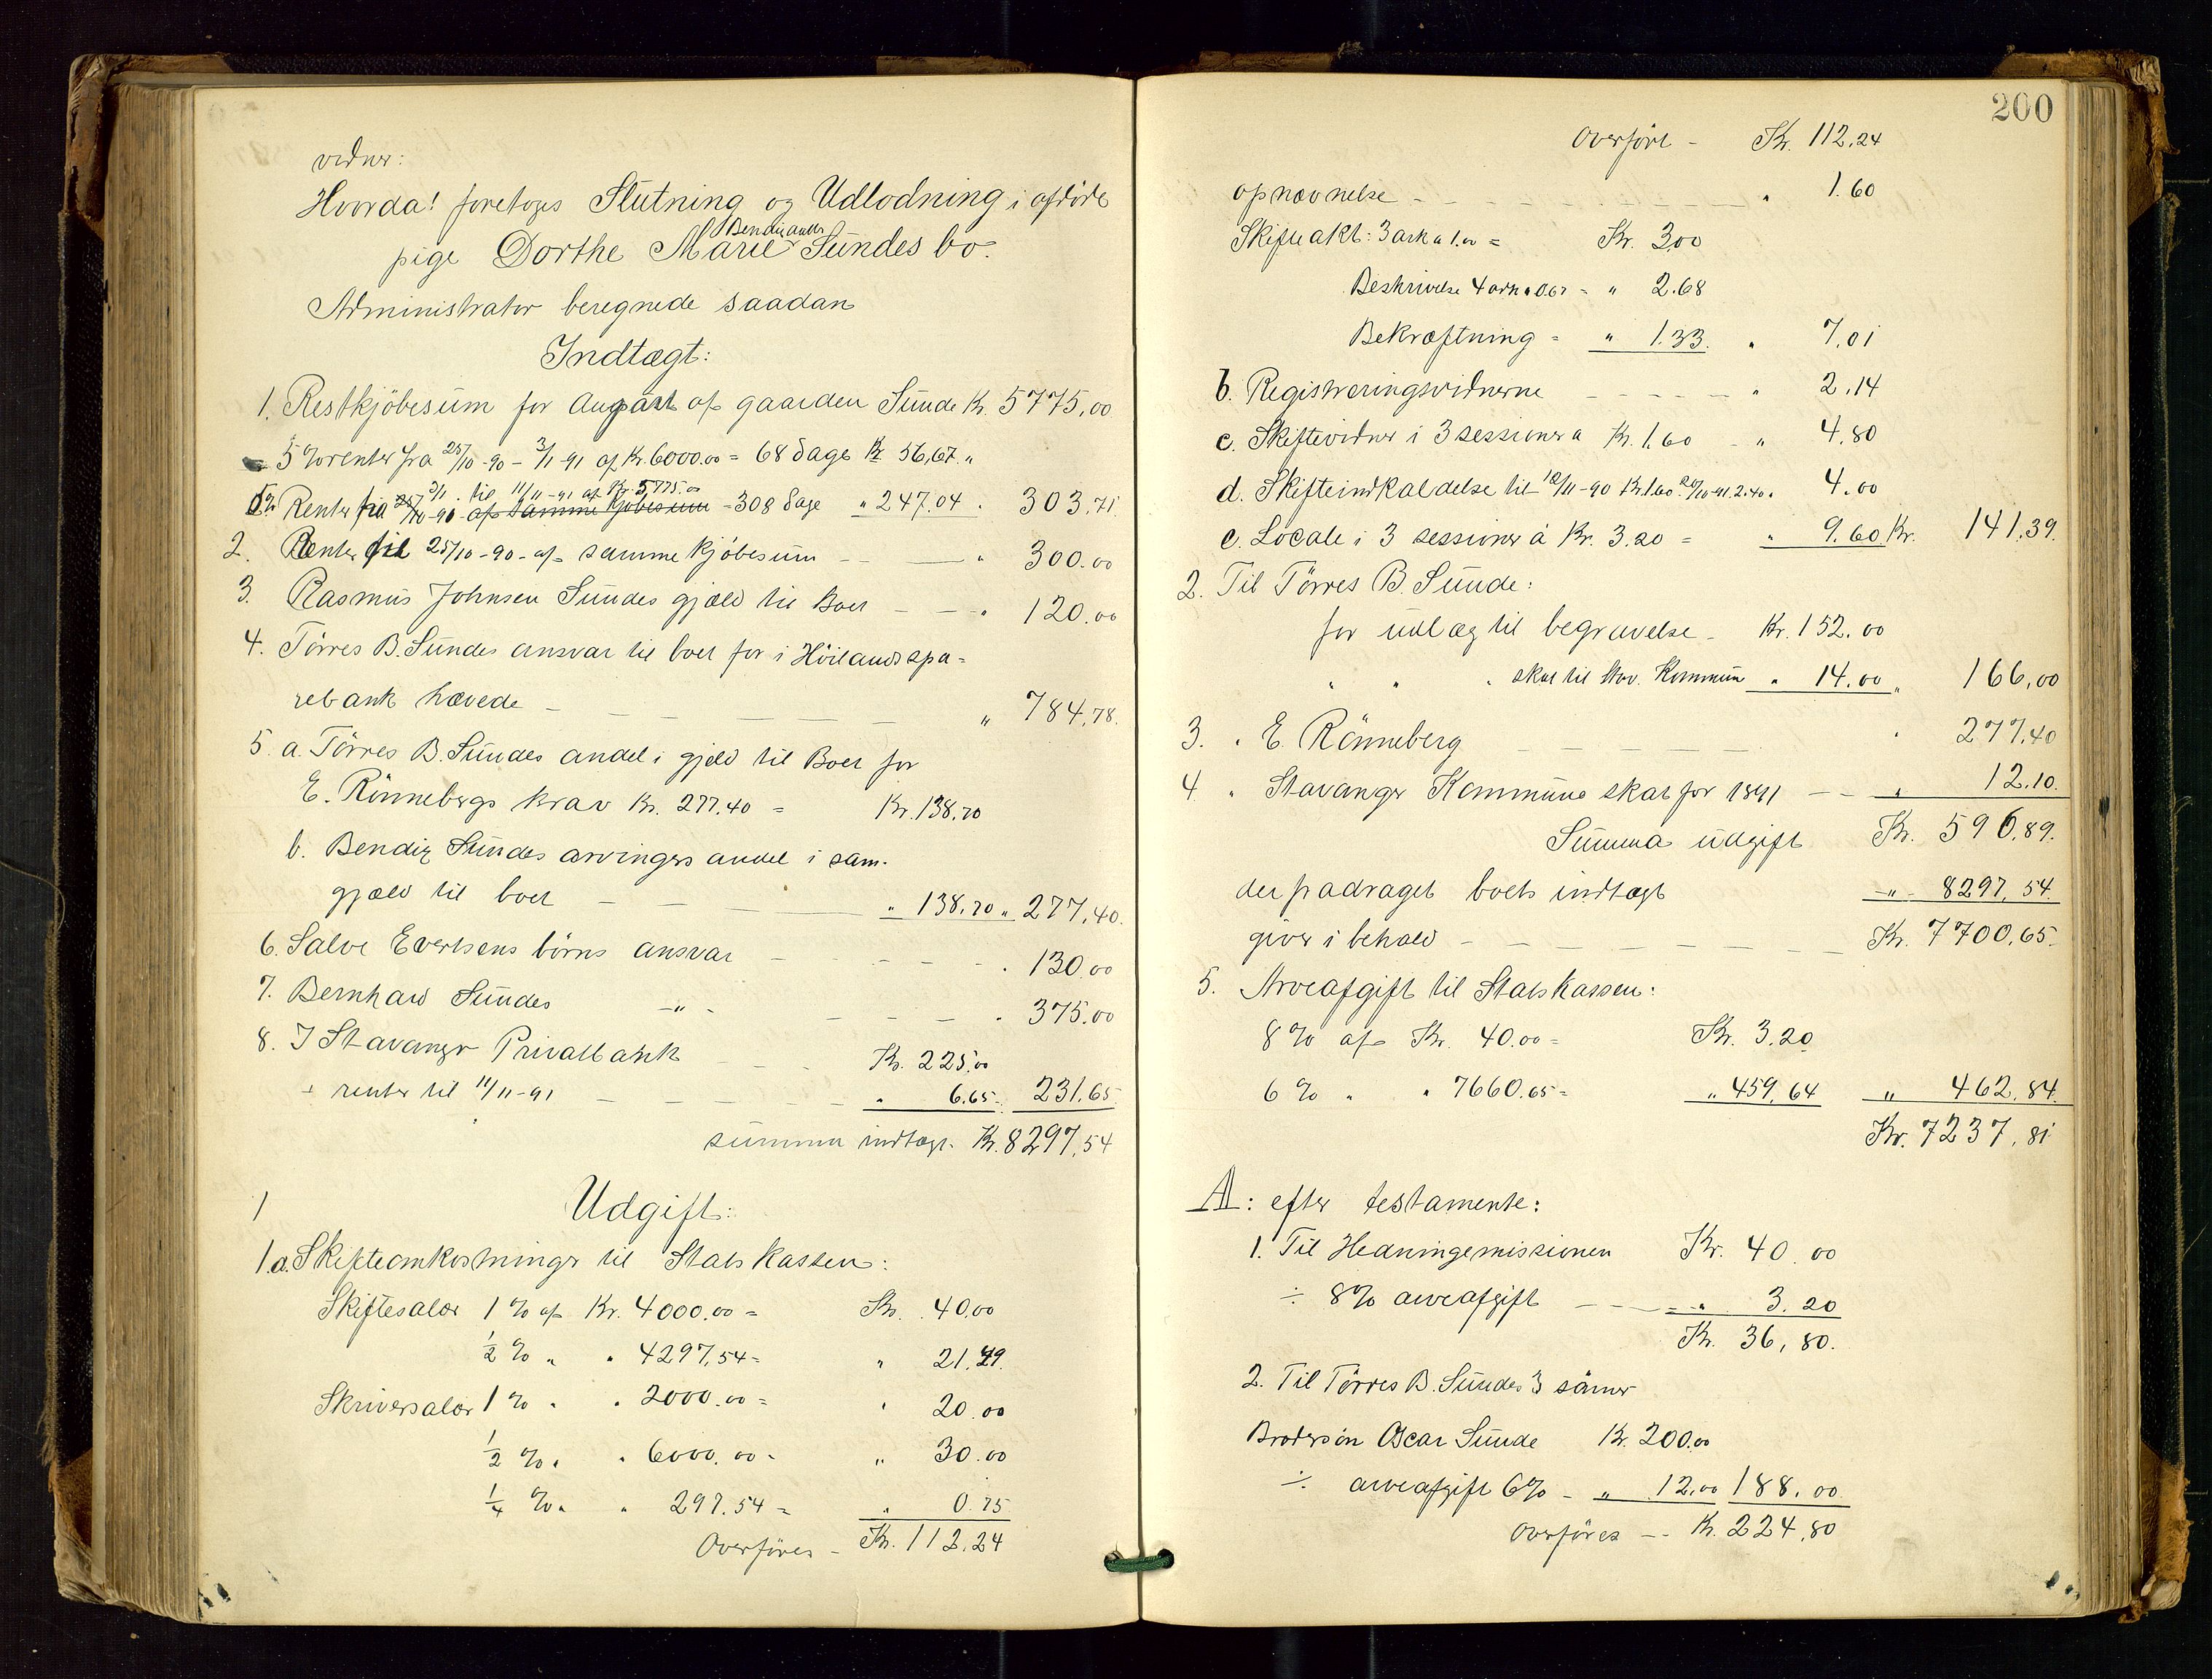 vidner:
Hvorda! foretoges Slutning og Udlodning i afdöde
pige Dorthe Marie Bendixdatter Sundes bo.
Administrator beregnede saadan
Indtægt:
1. Restkjöbesum for Aupart af gaarden Sunde Kr. 5775,00
5 % renter fra 25/10-90 – 3/1-91 af Kr. 6000.00 = 68 dage Kr 56,67 "
3/1 til 11/11-91 af Kr. 5775.00
5% Renter fra 25/10-90 af samme kjöbesum = 308 dage " 247.04 . 303,71
2. Renter til 25/10-90 - af samme kjöbesum — " 300.00
3. Rasmus Johnsen Sundes gjæld til Boet — — " 120.00
4. Törres B. Sundes ansvar til boet for i Höilands spa=
rebank hævede — — — — — " 784,78.
5. a. Törres B. Sundes andel i gjæld til Boet for
E. Rönnebergs krav Kr. 277.40 = Kr. 138,70
b. Bendix Sundes arvingers andel i sam.
gjæld til boet — — — " 138,70 " 277,40.
6. Salve Evertsens börns ansvar — — — — . 130.00
7. Bernhard Sundes —"— — — — . 375.00
8. I Stavanger Privatbank — — Kr. 225.00
+ renter til 11/11-91 — — — — " 6.65 = 231,65
summa indtægt. Kr. 8297,54
1 Udgift:
1.a. Skifteomkostninger til Statskassen:
Skiftesalær 1 % af Kr. 4000.00 = Kr. 40,00
1/2 % " " 4297,54 = " 21,49.
Skriversalær 1 % " " 2000.00 = " 20.00
1/2 % " " 6000.00 = " 30.00
1/4 % " " 297.54 = " 0.75
Overföres – Kr. 112,24
200
Overfört – Kr. 112,24
opnævnelse — — — — — " 1.60
Skifteakt: 3 ark a 1.00 = Kr. 3,00
Beskrivelse 4 ark a 0.67 = " 2.68
Bekræftning = " 1.33. " 7,01
b. Registreringsvidnerne — — — — " 2,14
c. Skiftevidner i 3 sessioner a Kr. 1,60 – " 4,80
d. Skifteindkaldelse til 12/11-90 Kr. 1.60 & 29/10-91 2.40 . 4.00
e. Locale i 3 sessioner á Kr. 3.20 = " 9.60 Kr. 141,39.
2. Til Törres B. Sunde:
for udlæg til begravelse – Kr. 152.00
" " " skat til Stav. Kommun " 14.00 " 166,00
3. " E. Rönneberg — — — — . 277,40
4. " Stavanger Kommune skat for 1891 — — " 12.10.
Summa udgift Kr. 596,89.
der fradraget boets indtægt –"– 8297,54.
giver i behold — — — — — — Kr. 7700,65.
5. Arveafgift til Statskassen:
8 % af Kr. 40.00 = Kr. 3.20
6 % " " 7660.65 = " 459,64 " 462,84.
Kr. 7237,81
A: efter testamente:
1. Til Hedningemissionen Kr. 40.00
÷ 8% arveafgift — — = " 3.20
Kr. 36,80.
2. Til Törres B. Sundes 3 sönner
Brodersön Oscar Sunde Kr. 200.00
÷ arveafgift 6% – " 12,00 188.00
Overföres — Kr. 224,80